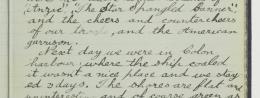 "The Star Spangled Banner",
and the cheers and countercheers
of our troops, and the American
garrison.
Next day we were in Colon
harbour, where the ship coaled
it wasn't a nice place and we stay
ed 3 days. The shores are flat and
uninteresting and of coarse green as